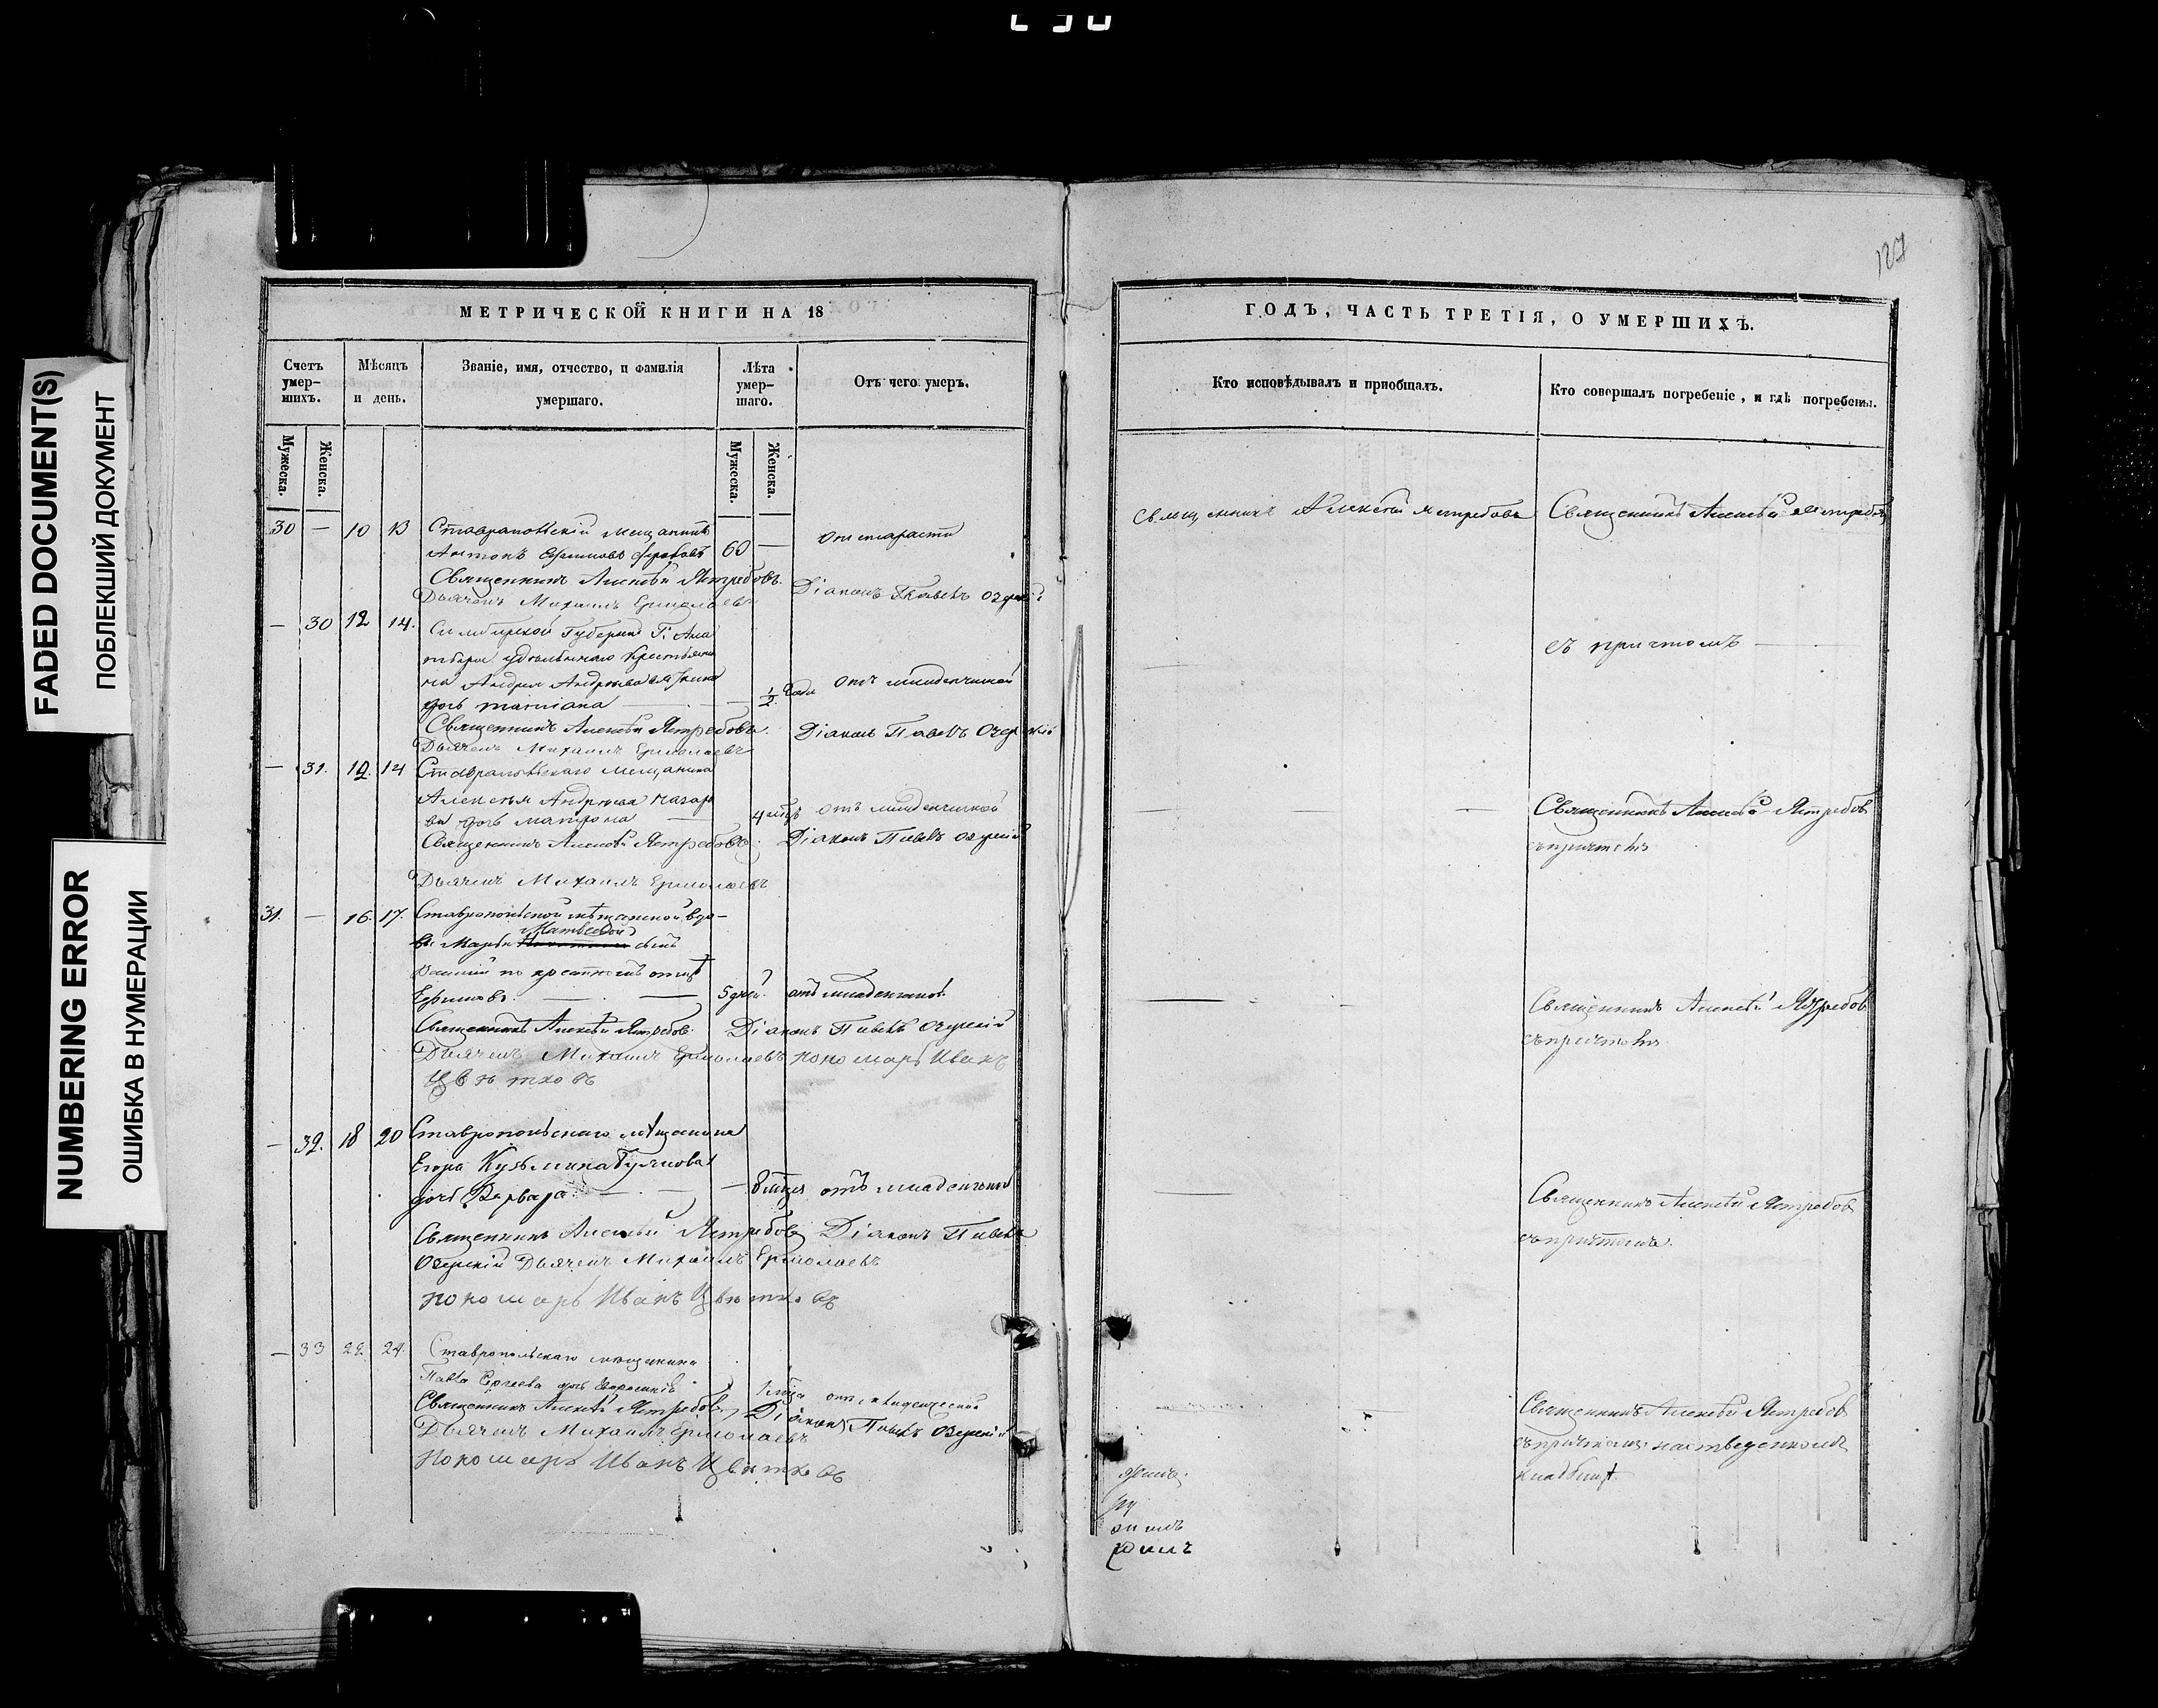 FADED DOCUMENT(S)
ПОБЛЕКШИЙ ДОКУМЕНТ
NUMBERING ERROR
ОШИБКА В НУМЕРАЦИИ
127
МЕТРИЧЕСКОЙ КНИГИ НА 18
Счетъ умер-шихъ.
Мѣсяцъ и день.
Званіе, имя, отчество, и фамилія умершаго.
Лѣта умер-шаго.
Отъ чего умеръ.
Мужеска.
Женска.
Мужеска.
Женска.
30 — 10 13 Ставрапольскій мещанинъ
Антонъ Ефимовъ 60 — отъ старасти
Священникъ Алексѣй Ястребовъ.
Дьячекъ Михаилъ Ермолаевъ Діаконъ Павелъ Озерскій
— 30 12 14. Симбирской Губерніи
удѣльнаго крестьяни
на Андрея
дочь татиана — 1/2 года отъ младенческой
Священникъ Алексѣй Ястребовъ. Діаконъ Павелъ Озерскій
Дьячекъ Михаилъ Ермолаевъ
— 31. 12. 14 Ставрапольскаго мещанина
Алексея Андреева назаро
ва дочь матрона — 4 мѣсц отъ младенческой
Священникъ Алексѣй Ястребовъ. Діаконъ Павелъ Озерскій
Дьячекъ Михаилъ Ермолаевъ
31. — 16. 17. Ставропольской мѣщанской вдо-
вы Марьи Матвеевой сынъ
по крестномъ отцѣ
Ефимовъ. — — 5 дней. отъ младенческой
Священникъ Алексѣй Ястребовъ Діаконъ Павелъ Озерскій
Дьячекъ Михаилъ Ермолаевъ пономарь Иванъ
Цвѣтковъ
— 32. 18 20 Ставропольскаго мѣщанина
Егора Кузьмина
дочь Варвара. — — — 8 мѣсця отъ младенческой
Священникъ Алексѣй Ястребовъ Діаконъ Павелъ
Озерскій Дьячекъ Михаилъ Ермолаевъ
пономарь Иванъ Цвѣтковъ
— 33 22. 24. Ставропольскаго мѣщанина
Павла Сергеева дочь
отъ младенческой
Священникъ Алексѣй Ястребовъ, Діаконъ Павелъ Озерскій
Дьячекъ Михаилъ Ермолаевъ
пономарь Иванъ Цвѣтковъ
ГОДЪ, ЧАСТЬ ТРЕТІЯ, О УМЕРШИХЪ.
Кто исповѣдывалъ и пріобщалъ.
Кто совершалъ погребеніе, и гдѣ погребены.
Священникъ Алексѣй Ястребовъ Священникъ Алексѣй Ястребовъ
съ причтомъ —
Священникъ Алексѣй Ястребовъ
съ причтомъ
Священникъ Алексѣй Ястребовъ
съ причтомъ
Священникъ Алексѣй Ястребовъ
съ причтомъ.
Священникъ Алексѣй Ястребовъ
съ причтомъ на отведенномъ
кладбищѣ